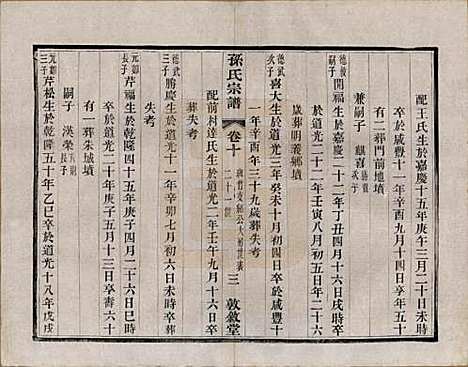 配王氏生於嘉慶十五年庚午三月二十日
卒於咸豐十一年辛酉九月十四日享年五十
有二葬門前地墳
兼嗣子 麒喜 德儀次子
德敘嗣子 開福生於嘉慶二十二年丁丑四月十六日戌時卒
於道光二十二年壬寅八月初五日年二十六
歲葬明義鄉墳
德武三子 喜大生於道光三年癸未十月初四日卒於咸豐十
一年辛酉年三十九歲葬失考
孫氏宗譜
卷十
二十一世
三
敦敘堂
配前村達氏生於道光二年壬午九月十六日
葬失考
德武長子 勝慶生於道光十一年辛卯七月初六日卒葬
失考
元鄰長子 芹福生於乾隆四十五年庚子四月二十六日未時
卒於道光二十年庚子五月十三日卒壽六十
有一葬朱城墳
嗣子 漢榮 長子
元鄰三子 芹松生於乾隆五十年乙巳卒於道光十八年戊戌